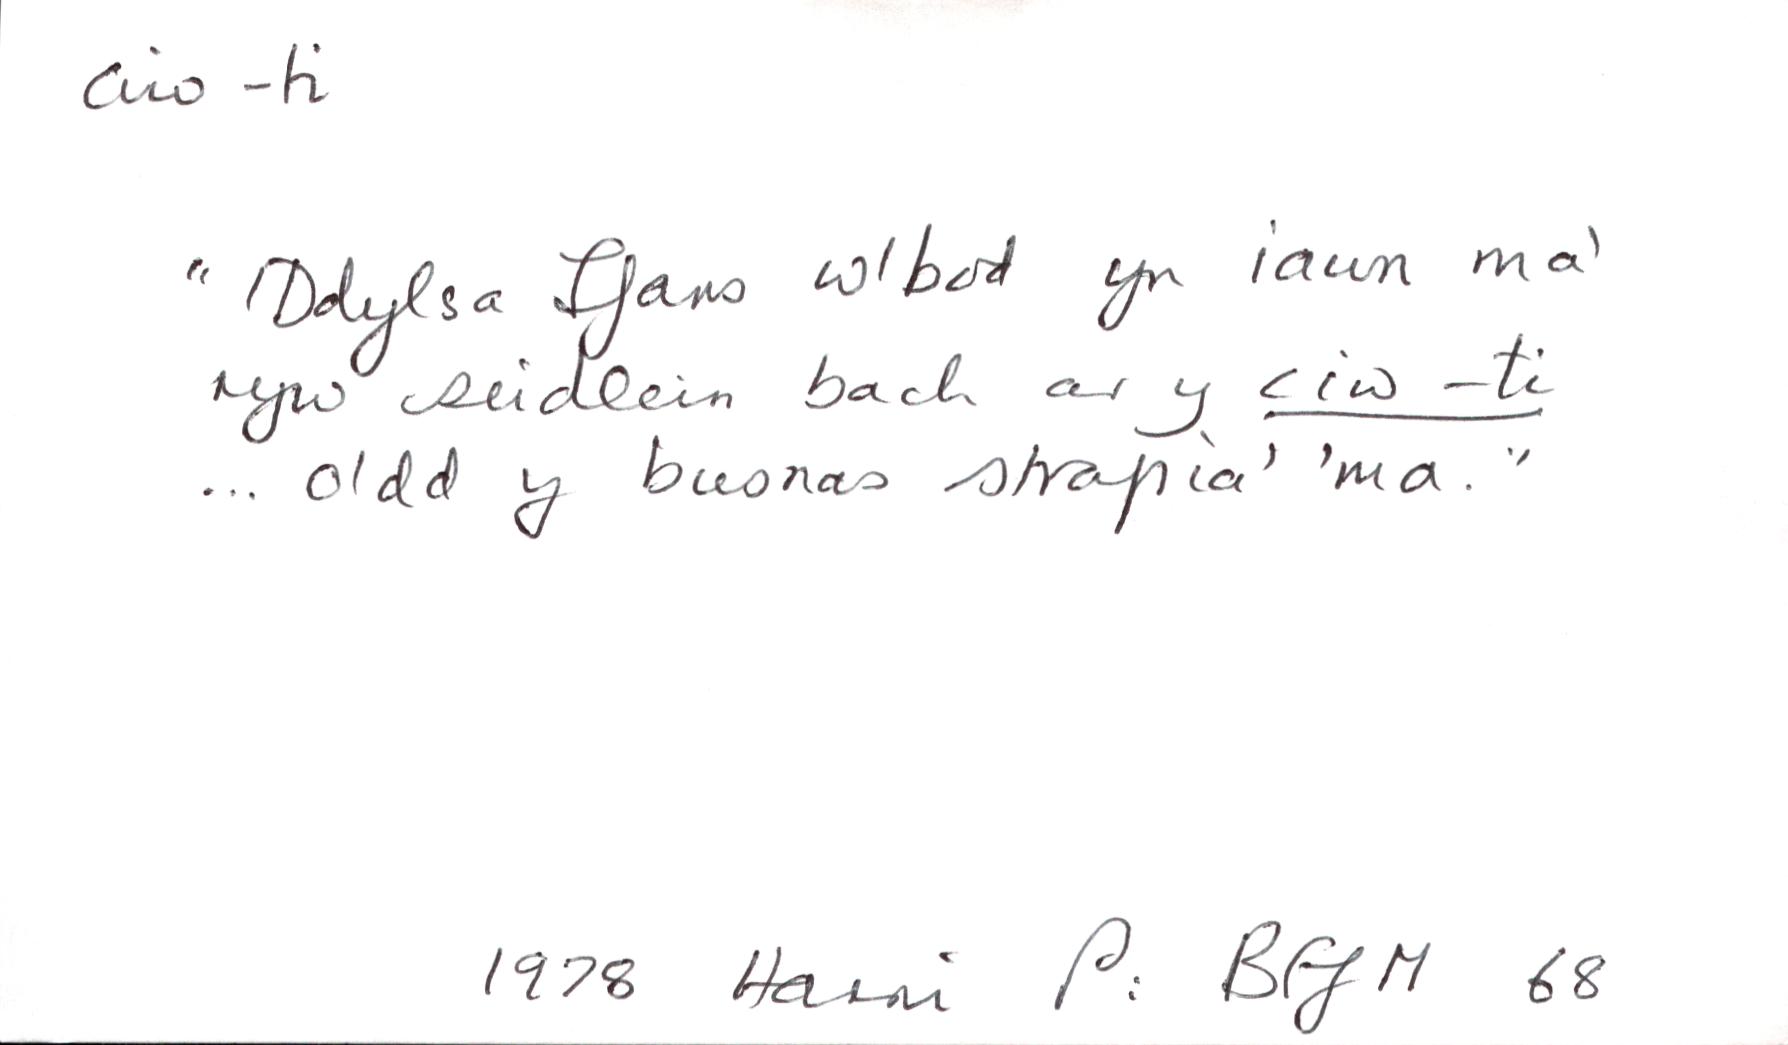 ciw -ti
"Ddylsa Ifans w'bod yn iawn ma'
ryw seidlein bach ar y ciw -ti
... oldd y busnas strapia' 'ma."
1978 Harri P: BGM 68